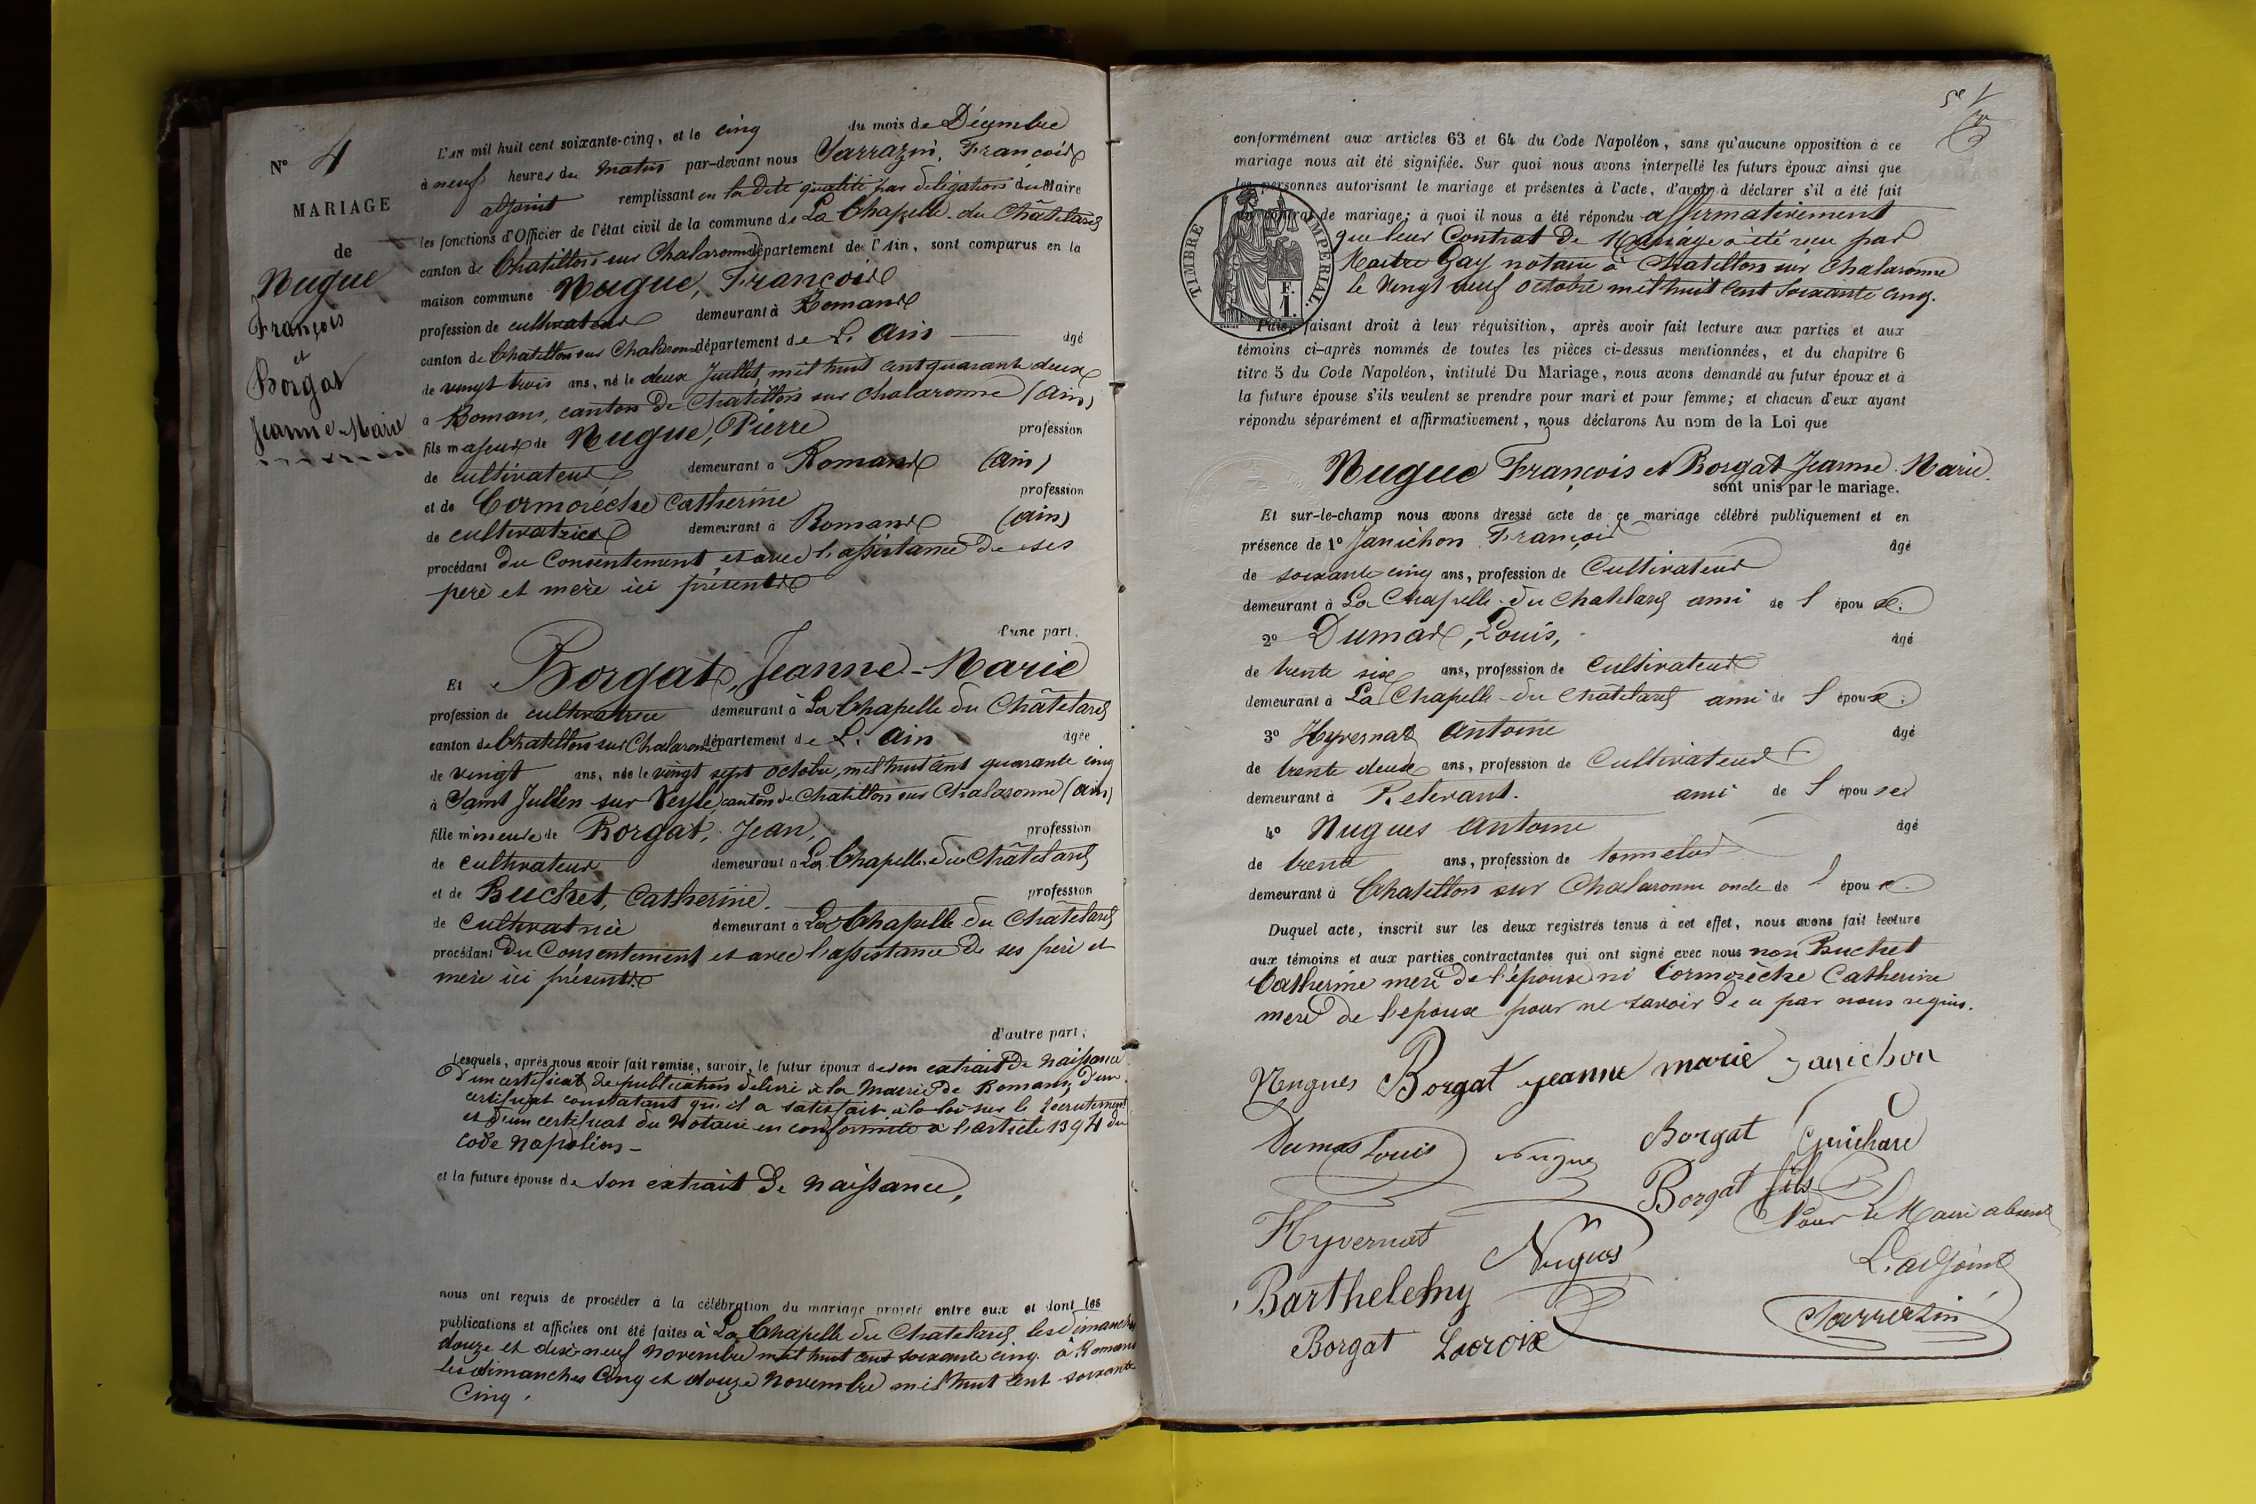 N° 4
MARIAGE
de
Nugue
François
et
Borgat
Jeanne-Marie
L'an mil huit cent soixante-cinq, et le cinq du mois de Décembre
à neuf heures du matin par-devant nous Sarrazin, François
adjoint remplissant en la dite qualité par délégation du Maire
les fonctions d'Officier de l'état civil de la commune de La Chapelle-du Châtelard
canton de Chatillon sur Chalaronne département de l'Ain, sont comparus en la
maison commune Nugue, François
profession de cultivateur demeurant à Romans
canton de Chatillon sur Chalaronne département de L'Ain âgé
de vingt trois ans, né le deux Juillet, mil huit cent quarante deux
à Romans, canton de Chatillon sur Chalaronne (Ain)
fils majeur de Nugue, Pierre profession
de cultivateur demeurant à Romans (Ain)
et de Cormorèche Catherine profession
de cultivatrice demeurant à Romans (Ain)
procédant du Consentement et avec l'assistance de ses
père et mère ici présents
d'une part.
Et Borgat, Jeanne-Marie
profession de cultivatrice demeurant à La Chapelle du Châtelard
canton de Chatillon sur Chalaronne département de L'Ain âgée
de vingt ans, née le vingt sept octobre, mil huit cent quarante cinq
à Saint Julien-sur Veyle canton de Chatillon sur Chalaronne (Ain)
fille mineure de Borgat, Jean, profession
de cultivateur demeurant à La Chapelle du Châtelard
et de Buchet, Catherine. profession
de cultivatrice demeurant à La Chapelle du Châtelard
procédant du Consentement et avec l'assistance de ses père et
mère ici présents
d'autre part;
Lesquels, après nous avoir fait remise, savoir, le futur époux de son extrait de naissance
d'un certificat de publication délivré à la Mairie de Romans, d'un
certificat constatant qu'il a satisfait à la loi sur le recrutement
et d'un certificat du Notaire en conformité à l'article 1394 du
Code Napoléon –
et la future épouse de son extrait de naissance,
nous ont requis de procéder à la célébration du mariage projeté entre eux et dont les
publications et affiches ont été faites à La Chapelle du Chatelard les dimanches
douze et dix-neuf novembre mil huit cent soixante cinq. à Romans
les dimanches cinq et douze novembre mil huit cent soixante
cinq.
conformément aux articles 63 et 64 du Code Napoléon, sans qu'aucune opposition à ce
mariage nous ait été signifiée. Sur quoi nous avons interpellé les futurs époux ainsi que
les personnes autorisant le mariage et présentes à l'acte, d'avoir à déclarer s'il a été fait
un contrat de mariage; à quoi il nous a été répondu affirmativement
que leur Contrat de Mariage a été reçu par
Maitre Gay notaire à Chatillon sur Chalaronne
le Vingt neuf octobre mil huit cent soixante cinq.
TIMBRE IMPÉRIAL.
F.
1.
Puis, faisant droit à leur réquisition, après avoir fait lecture aux parties et aux
témoins ci-après nommés de toutes les pièces ci-dessus mentionnées, et du chapitre 6
titre 5 du Code Napoléon, intitulé Du Mariage, nous avons demandé au futur époux et à
la future épouse s'ils veulent se prendre pour mari et pour femme; et chacun d'eux ayant
répondu séparément et affirmativement, nous déclarons Au nom de la Loi que
Nugue François et Borgat Jeanne-Marie.
sont unis par le mariage.
Et sur-le-champ nous avons dressé acte de ce mariage célébré publiquement et en
présence de 1° Janichon François âgé
de soixante cinq ans, profession de Cultivateur
demeurant à La Chapelle-du Chatelard ami de l'époux.
2° Dumas, Louis, âgé
de trente six ans, profession de cultivateur
demeurant à La Chapelle-du Chatelard ami de l'époux.
3° Hyvernat Antoine âgé
de trente deux ans, profession de Cultivateur
demeurant à Relevant. ami de l'épouse
4° Nugues Antoine âgé
de trente ans, profession de tonnelier
demeurant à Chatillon sur Chalaronne oncle de l'époux.
Duquel acte, inscrit sur les deux registres tenus à cet effet, nous avons fait lecture
aux témoins et aux parties contractantes qui ont signé avec nous non Buchet
Catherine mère de l'épouse ni Cormorèche Catherine
mère de l'époux pour ne savoir de ce par nous requis.
Nugues Borgat jeanne marie Janichon
Dumas Louis nugue Borgat Guichard
Borgat fils
Hyvernat Nugues Pour le Maire absent
L'adjoint
Barthelemy
Sarrazin
Borgat Lacroix